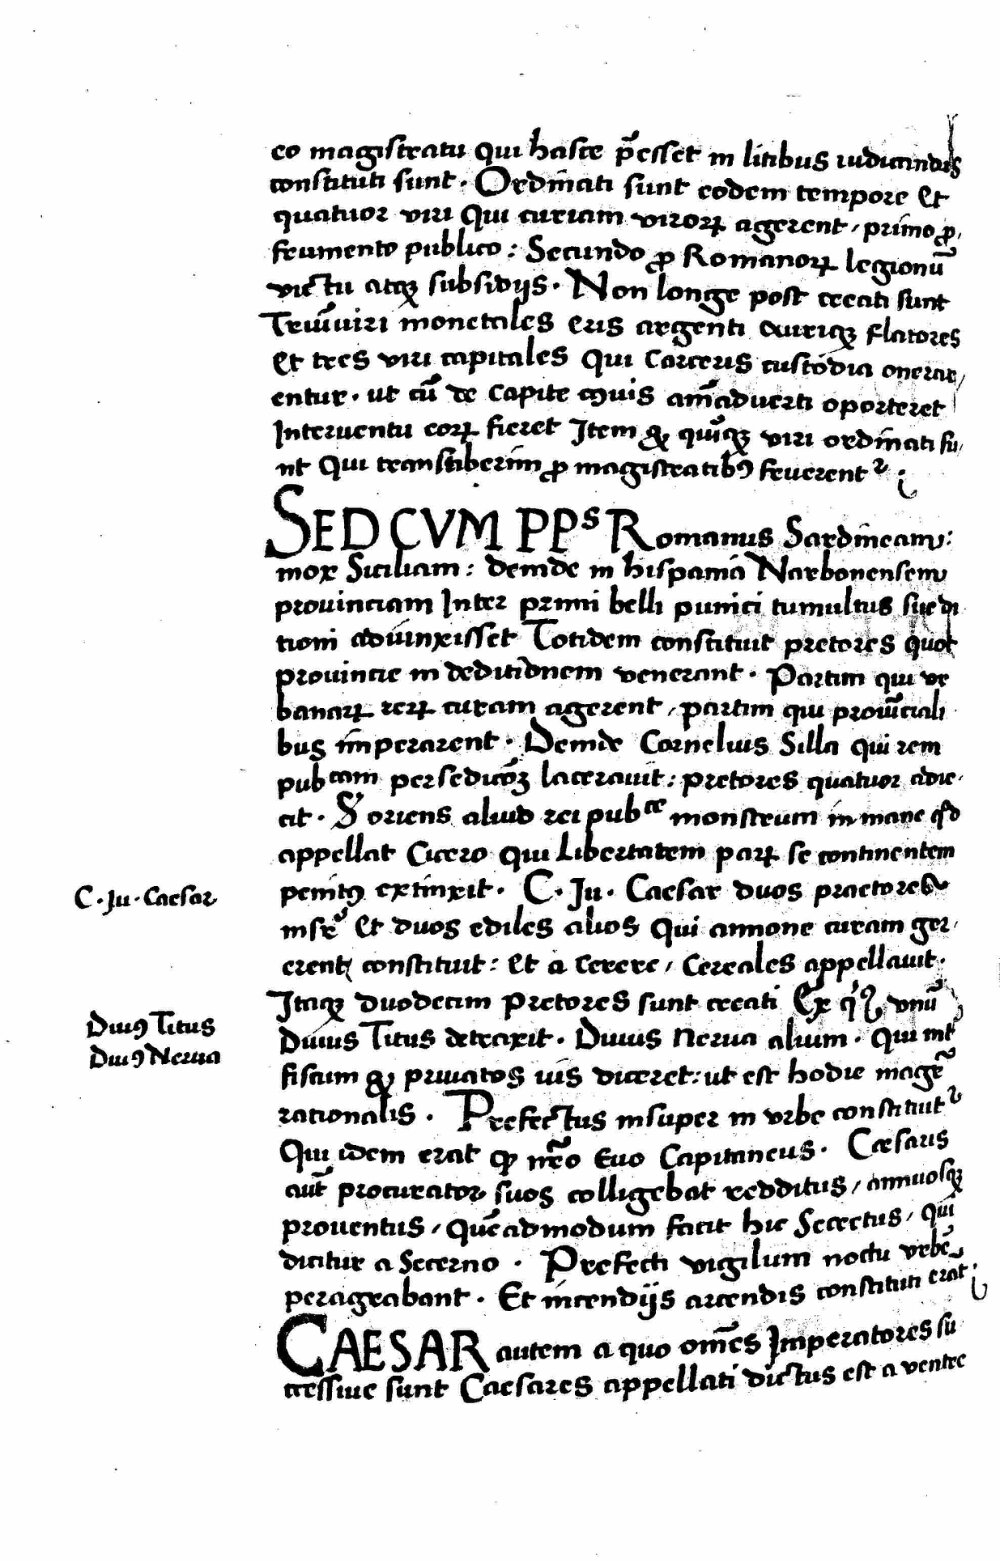 eo magistratu qui haste p̄esset in litibus iudicandis
constituti sunt. Ordinati sunt eodem tempore et
quatuor viri qui curiam virorꝝ agerent, primo ꝓ
frumento publico: Secundo ꝓ Romanorꝝ legionū
victu atqꝫ subsidijs. Non longe post creati sunt
Triūviri monetales eris argenti aurıqꝫ flatores
et tres viri capitales qui carceris custodia onerar,
entur. ut cū de capite cuius aīaduerti oporteret
Interuentu eorꝝ fieret Item qꝫ quīqꝫ viri ordinati su,
nt qui transtiberim ꝓ magistratibꝰ feuerent
SED CVM PPˢ Romanus Sardineam:
mox Siciliam: deinde in hispania Narbonensem
prouinciam Inter primi belli punici tumultus sue di
tioni aduinxisset Totidem constituit pretores quot
prouincie in deditionem venerant. Partim qui vr
banarꝝ rerꝝ curam agerent, partim qui prouīciali
bus imperarent. Deinde Cornelius Silla qui rem
pubᶜᵃᵐ persedicōꝫ lacerauit: pretores quatuor adie,
cit. Soriens aliud rei pubᶜᵉ monstrum in mane qd
appellat Cicero qui Libertatem parꝝ se continentem
penitꝰ extinxit. C. Iu. Caesar duos praetores
et duos ediles alios qui annone curam ger,
erent constituit: et a Cerere, Cereales appellauit.
Itaqꝫ duodecim pretores sunt creati Ex vnū
Diuus Titus detraxit. Diuus Nerua alium. Qui int
fiscum qꝫ priuatos ius diceret: ut est hodie magr̄
rationalis. Prefectus insuper in vrbe constitut
Qui idem erat nr̄o Euo Capitaneus. Cæsaris
aut̄ procurator suos colligebat redditus, annuosqꝫ
prouentus, Quēadmodum facit hic Secretus, qui
dicitur a Secerno. Prefecti vigilum noctu vrbē
peragrabant. Et incendijs arcendis constituti erāt
CAESAR autem a quo omēs Imperatores su
cressiue sunt Caesares appellati dictus est a ventre
C. Iu. Caesar
Diuꝰ Titus
Diuꝰ Nerua